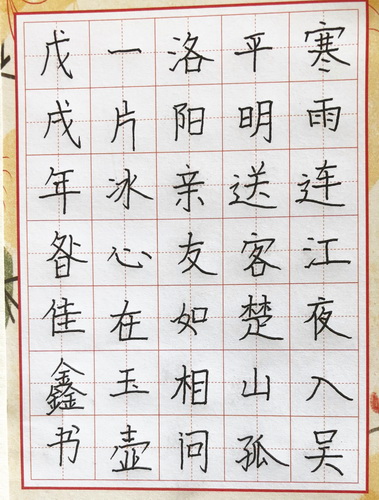 寒雨连江夜入吴
平明送客楚山孤
洛阳亲友如相问
一片冰心在玉壶
戊戌年昝佳鑫书